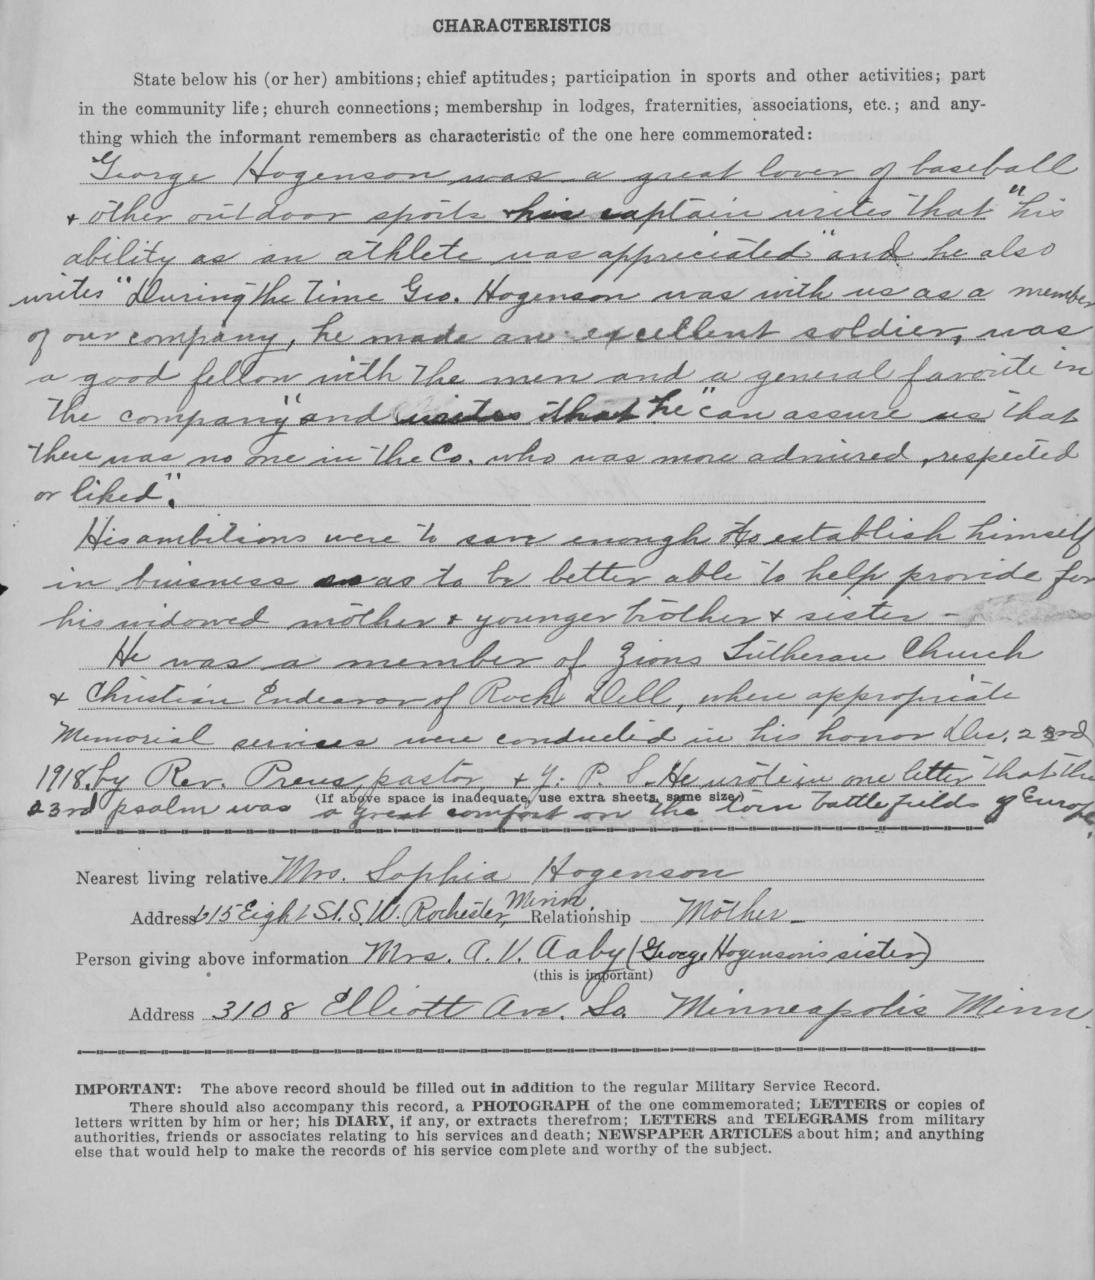 CHARACTERISTICS
State below his (or her) ambitions; chief aptitudes; participation in sports and other activities; part
in the community life; church connections; membership in lodges, fraternities, associations, etc.; and any-
thing which the informant remembers as characteristic of the one here commemorated:
George Hogenson was a great lover of baseball
& other outdoor sports his captain writes that "his
ability as an athlete was appreciated" and he also
writes "During the time Geo. Hogenson was with us as a member
of our company, he made an excellent soldier, was
a good fellow with the men and a general favorite in
the company" and writes that he "can assure us that
there was no one in the Co. who was more admired, respected
or liked".
His ambitions were to save enough to establish himself
in buisness so as to be better able to help provide for
his widowed mother & younger brother & sister -
He was a member of Zions Lutheran Church
& Christian Endeavor of Rock Dell, where appropriate
Memorial services were conducted in his honor Dec. 23rd
1918. by Rev. Preus, pastor & Y. P. S. He wrote in one letter that the
23rd psalm was a great comfort on the torn battlefields of Europe.
(If above space is inadequate, use extra sheets, same size)
Nearest living relative Mrs. Sophia Hogenson
Address 615 Eight St. S.W. Rochester, Minn. Relationship Mother -
Person giving above information Mrs. A. V. Aaby (George Hogenson's sister)
(this is important)
Address 3108 Elliott Ave. So. Minneapolis Minn.
IMPORTANT: The above record should be filled out in addition to the regular Military Service Record.
There should also accompany this record, a PHOTOGRAPH of the one commemorated; LETTERS or copies of
letters written by him or her; his DIARY, if any, or extracts therefrom; LETTERS and TELEGRAMS from military
authorities, friends or associates relating to his services and death; NEWSPAPER ARTICLES about him; and anything
else that would help to make the records of his service complete and worthy of the subject.